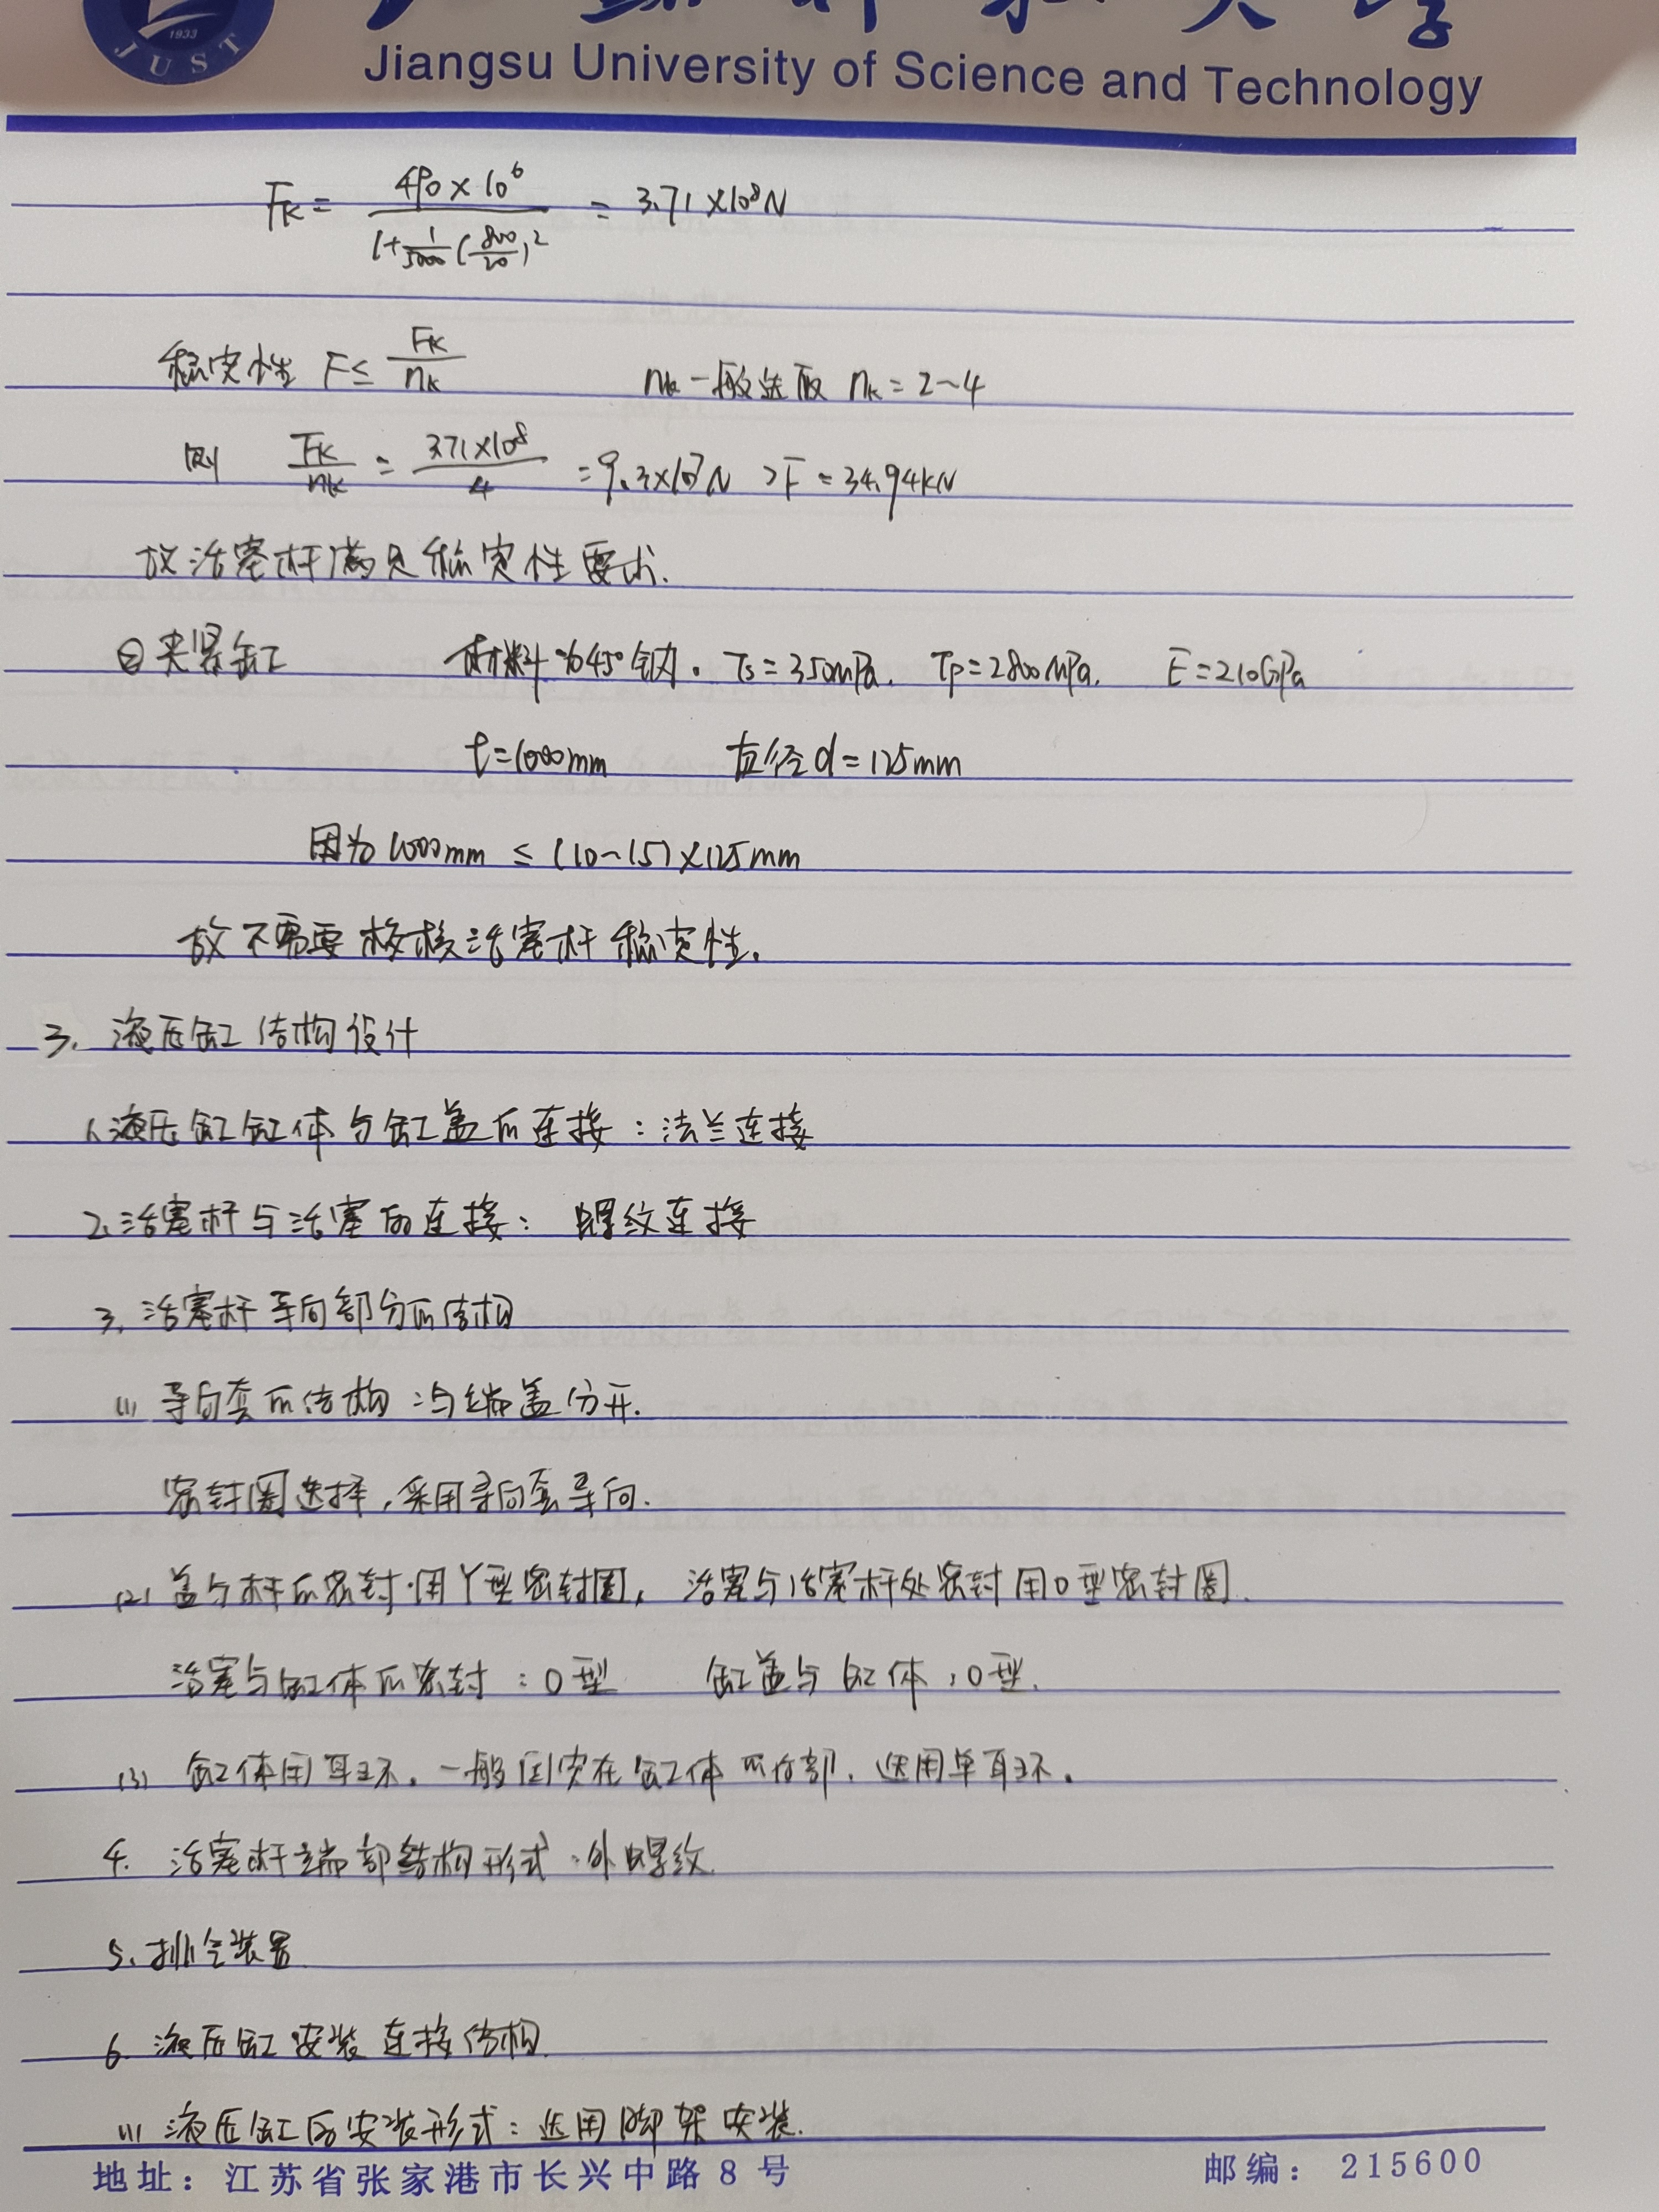 1933
JUST
Jiangsu University of Science and Technology
Fk = 490×10⁶ / (1+1/5000(800/20)²) = 3.71×10⁸N
稳定性 F≤ Fk/nk nk一般选取 nk=2~4
则 Fk/nk = 3.71×10⁸/4 =9.3×10⁷N >F=34.94kN
故活塞杆满足稳定性要求.
②夹紧缸 材料为45°钢. Ts=350mPa. Tp=2800MPa. E=210GPa
l=1000mm 直径d=125mm
因为1000mm ≤ (10~15)×125mm
故不需要校核活塞杆稳定性.
3. 液压缸结构设计
1.液压缸缸体与缸盖的连接:法兰连接
2.活塞杆与活塞的连接: 螺纹连接
3.活塞杆导向部分的结构
(1) 导向套的结构:与端盖分开.
密封圈选择,采用导向套导向.
(2) 盖与杆的密封:用Y型密封圈, 活塞与活塞杆处密封用O型密封圈.
活塞与缸体的密封:O型 缸盖与缸体:O型.
(3) 缸体用耳环.一般固定在缸体的 部.选用单耳环.
4. 活塞杆端部结构形式:外螺纹.
5.排气装置.
6.液压缸安装连接结构.
(1) 液压缸的安装形式:选用脚架安装.
地址:江苏省张家港市长兴中路8号 邮编:215600